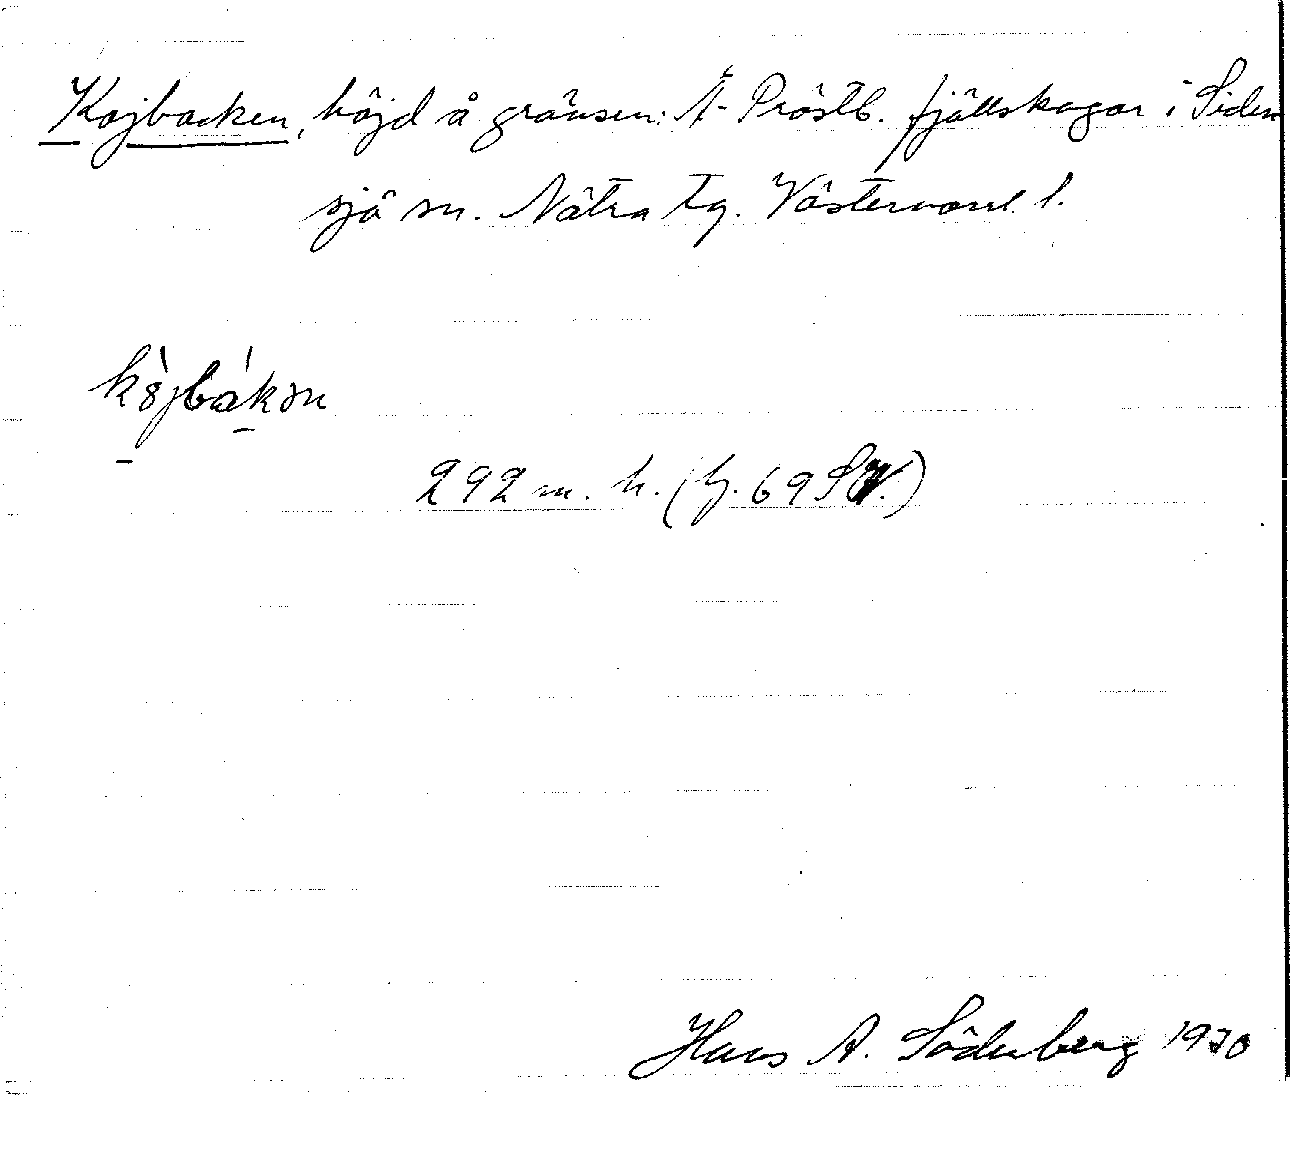 Kojbacken, höjd å gränsen: Å- Prästb. fjällskogar i Siden
sjö sn. Nätra tg. Västernorrl l.
292 m. h. (h. 69 SV.)
Hans A. Söderberg 1930